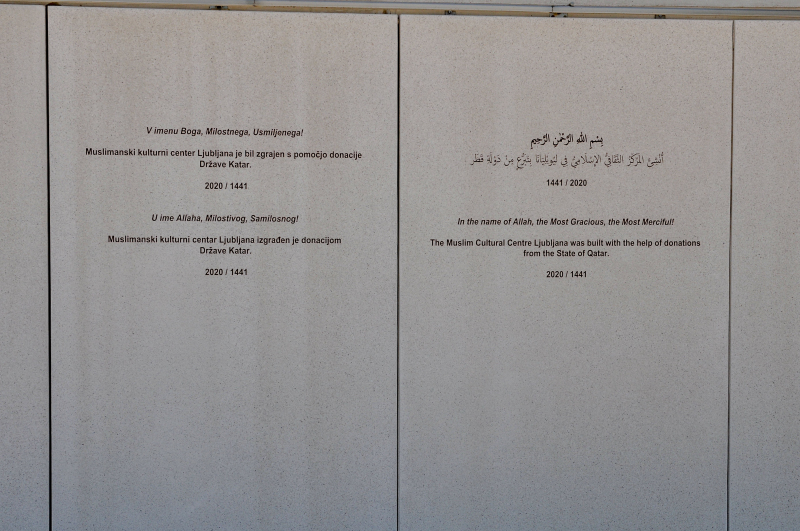 V imenu Boga, Milostnega, Usmiljenega!
Muslimanski kulturni center Ljubljana je bil zgrajen s pomočjo donacije
Države Katar.
2020 / 1441
U ime Allaha, Milostivog, Samilosnog!
Muslimanski kulturni centar Ljubljana izgrađen je donacijom
Države Katar.
2020 / 1441
بِسْمِ اللهِ الرَّحْمٰنِ الرَّحِيمِ
أُنْشِئَ المَرْكَزُ الثَّقَافِيُّ الإِسْلَامِيُّ فِي لِيُوبْلِيَانَا بِتَبَرُّعٍ مِنْ دَوْلَةِ قَطَر
1441 / 2020
In the name of Allah, the Most Gracious, the Most Merciful!
The Muslim Cultural Centre Ljubljana was built with the help of donations
from the State of Qatar.
2020 / 1441